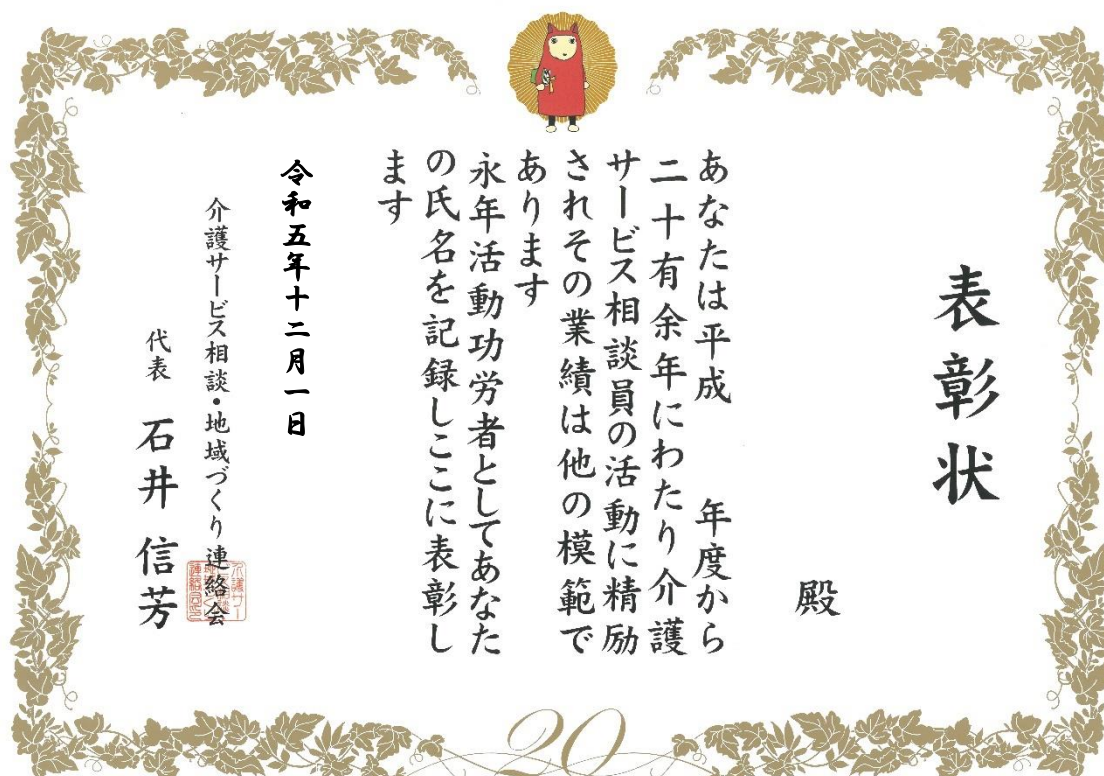 表彰状
殿
あなたは平成　　年度から
二十有余年にわたり介護
サービス相談員の活動に精励
されその業績は他の模範で
あります
永年活動功労者としてあなた
の氏名を記録しここに表彰し
ます
令和五年十二月一日
介護サービス相談・地域づくり連絡会
代表 石井 信芳
20